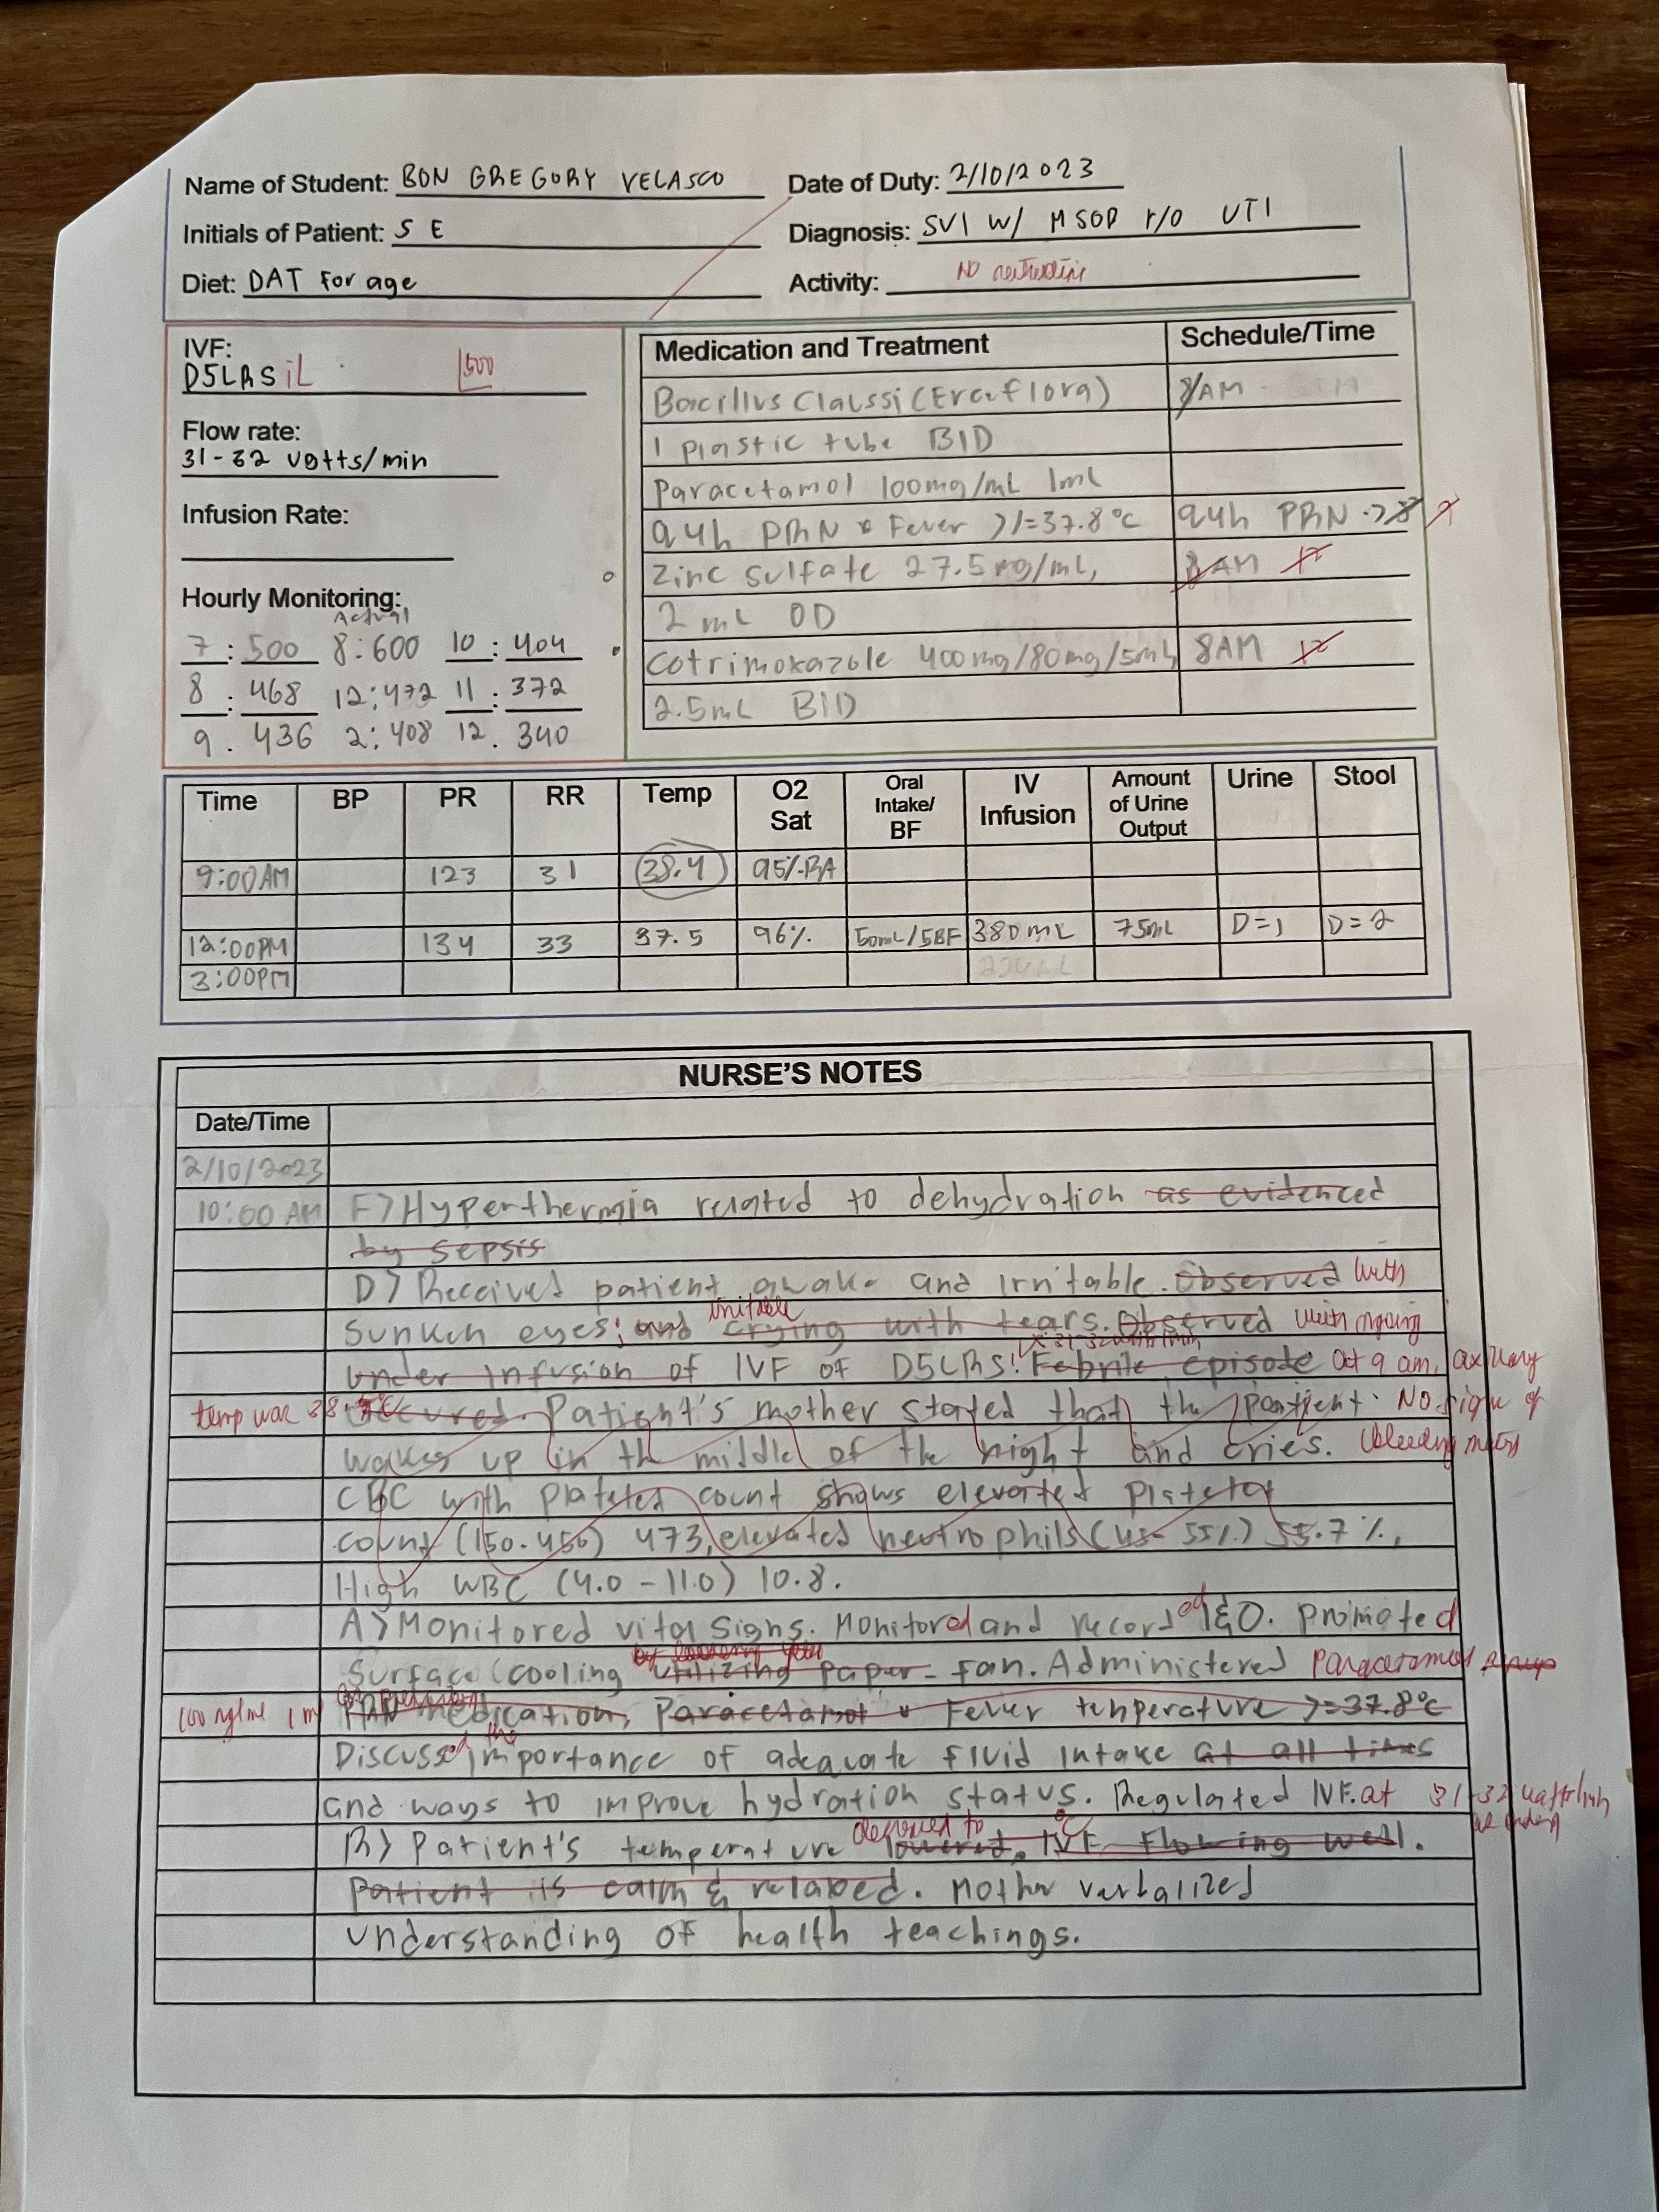 Name of Student: BON GREGORY VELASCO Date of Duty: 2/10/2023
Initials of Patient: S E Diagnosis: SVI W/ MSOD r/o UTI
Diet: DAT For age Activity: No
IVF:
D5LRS iL 500
Flow rate:
31-32 ugtts/min
Infusion Rate:
Hourly Monitoring:
Actual
7 : 500 8:600 10 : 404
8 : 468 12:472 11 : 372
9 . 436 2:408 12 . 340
Medication and Treatment Schedule/Time
Bacillus Claussi (Erceflora) 8AM
1 plastic tube BID
Paracetamol 100mg/mL 1mL
q4h PRN Fever >/=37.8°C q4h PRN
Zinc sulfate 27.5mg/mL, 8AM
2 mL OD
Cotrimoxazole 400mg/80mg/5mL 8AM
2.5mL BID
Time BP PR RR Temp O2 Sat Oral Intake/ BF IV Infusion Amount of Urine Output Urine Stool
9:00AM 123 31 38.4 95%RA
12:00PM 134 33 37.5 96% 50mL/5BF 380mL 75mL D=1 D=2
3:00PM
NURSE'S NOTES
Date/Time
2/10/2023
10:00 AM F> Hyperthermia related to dehydration as evidenced
by sepsis
D> Received patient awake and irritable. Observed with
irritable
sunken eyes; and crying with tears. Observed with ongoing
under infusion of IVF of D5LRS! Febrile episode at 9 am, axillary
temp was 38. occured. Patient's mother stated that the patient. No sign of
wakes up in the middle of the night and cries. bleeding
CBC with plateted count shows elevated platetet
count (150-450) 473, elevated neutrophils (45-55%) 55.7%,
High WBC (4.0-11.0) 10.8.
A> Monitored vital signs. Monitored and recorded I&O. Promoted
Surface cooling utilizing paper fan. Administered Paracetamol
100mg/ml 1m PRN medication, Paracetamol Fever temperature >=37.8°C
Discussed the importance of adequate fluid intake at all times
and ways to improve hydration status. Regulated IVF. at 31-32 ugtts/min
R> Patient's temperature decreased to lowered. IVF flowing well.
Patient is calm & relaxed. Mother verbalized
understanding of health teachings.